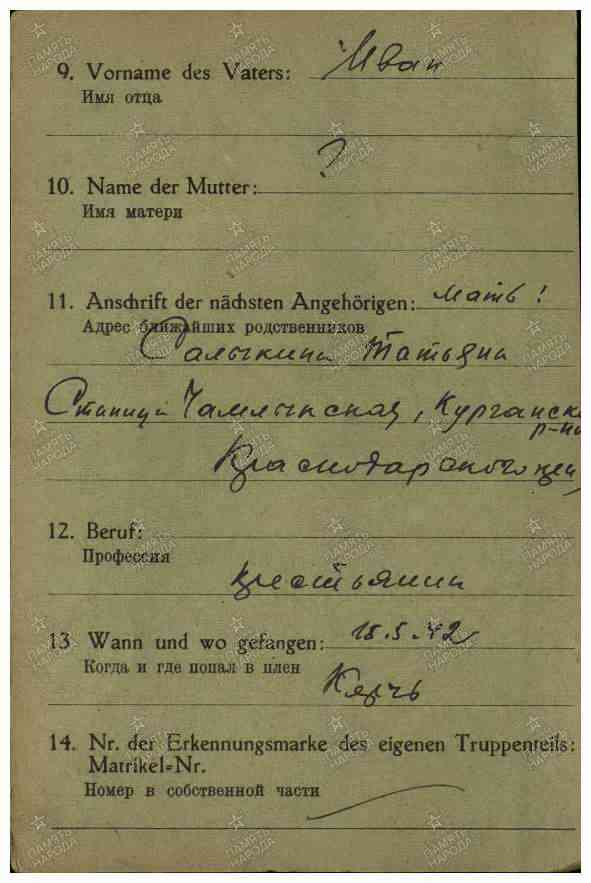 9. Vorname des Vaters: Иван
Имя отца
?
10. Name der Mutter:
Имя матери
11. Anschrift der nächsten Angehörigen: мать!
Адрес ближайших родственников
Салыкина Татьяна
Станица Чамлыкская, Курганск
р-на
Краснодарского
12. Beruf:
Профессия
крестьянин
13 Wann und wo gefangen: 18.5.42
Когда и где попал в плен
Керчь
14. Nr. der Erkennungsmarke des eigenen Truppenteils:
Matrikel=Nr.
Номер в собственной части